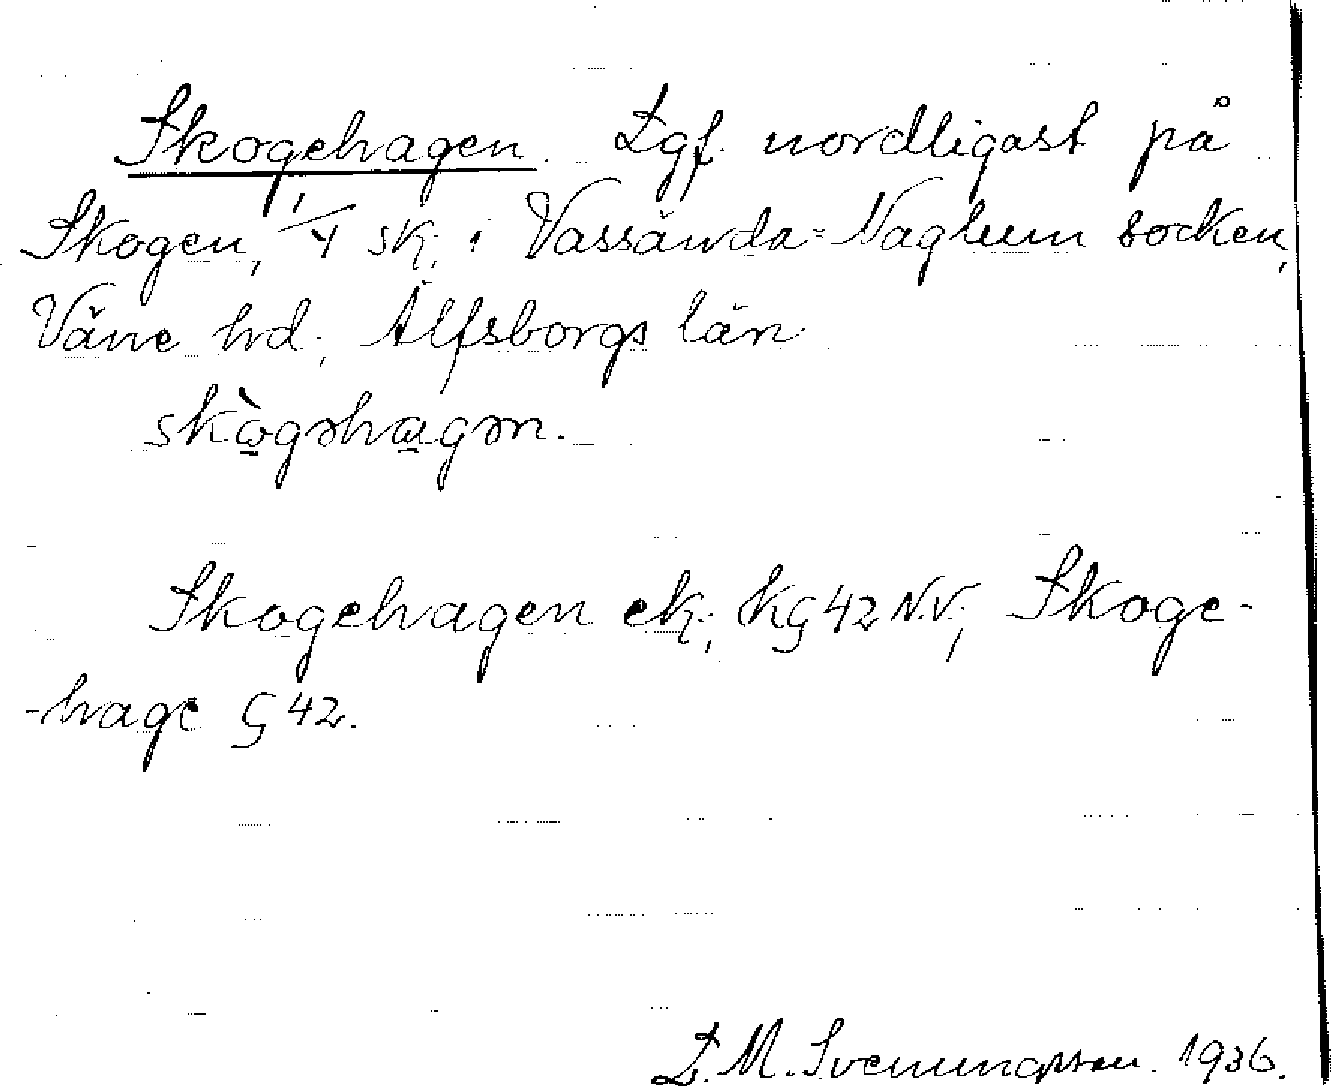 Skogehagen. Lgf. nordligast på
Skogen, 1/4 sk. i Vassända-Naglum socken,
Väne hd, Älfsborgs län.
skògəhagən.
Skogehagen ek., KG42N.V., Skoge-
-hage G 42.
L. M. Svenungsson. 1936.